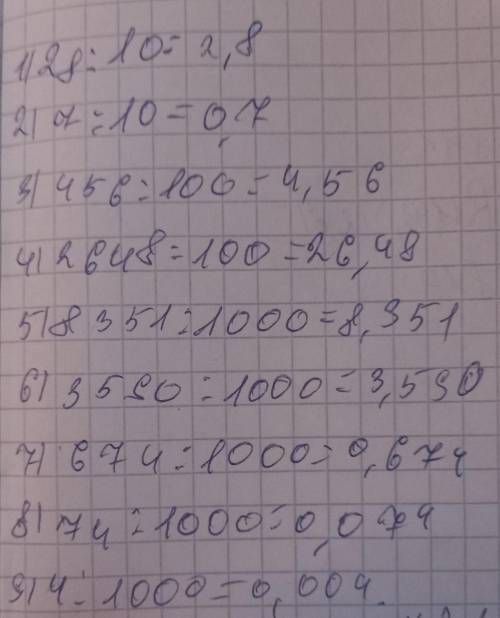 1) 28 : 10 = 2,8
2) 7 : 10 = 0,7
3) 456 : 100 = 4,56
4) 2648 : 100 = 26,48
5) 8351 : 1000 = 8,351
6) 3590 : 1000 = 3,590
7) 674 : 1000 = 0,674
8) 74 : 1000 = 0,074
9) 4 : 1000 = 0,004